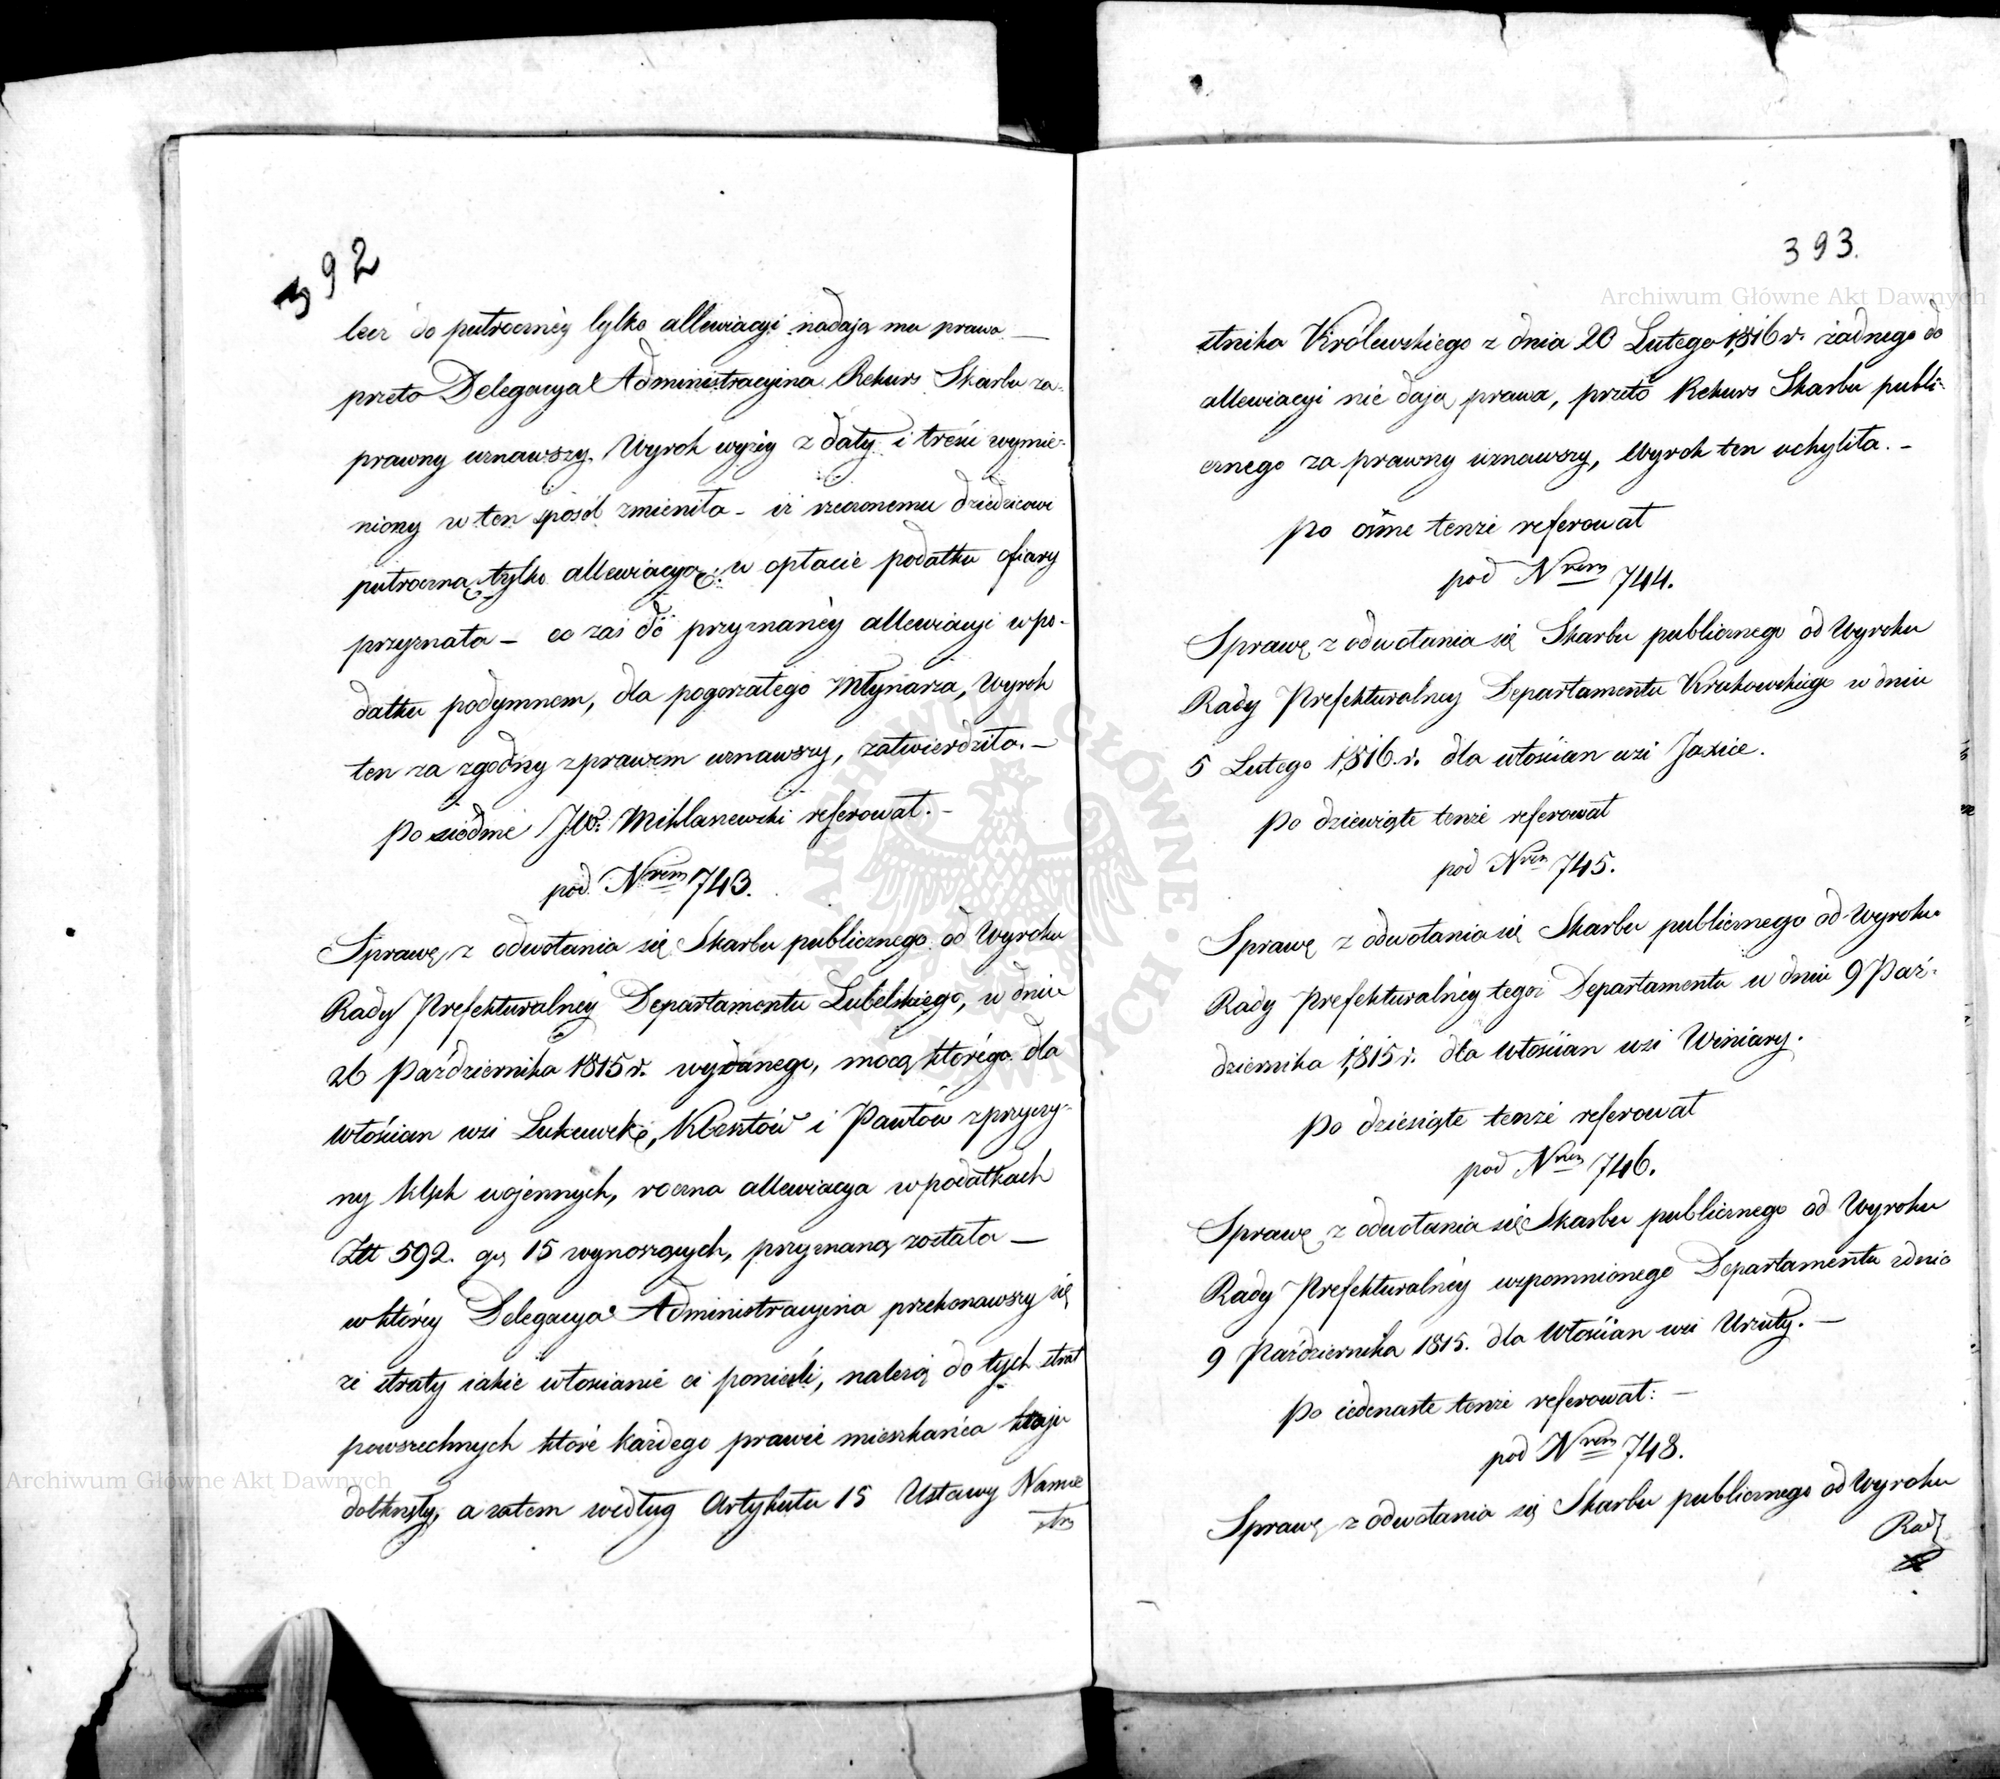 392
lecz do półroczney tylko allewiacyi nadają mu prawo —
przeto Delegacya Administracyina Rekurs Skarbu za
prawny uznawszy, Wyrok wyżey z daty i treści wymie-
niony w ten sposób zmieniła – iż rzeczonemu dziedzicowi
półroczną tylko allewiacyą w opłacie podatku ofiary
przyznała – co zaś do przyznaney allewiacyi w po-
datku podymnem, dla pogorzałego Młynarza, Wyrok
ten za zgodny z prawem uznawszy, zatwierdziła. –
Po siódme JW. Miklanewski referował. –
pod Nrem 743.
Sprawę z odwołania się Skarbu publicznego od Wyroku
Rady Prefekturalney Departamentu Lubelskiego, w dniu
26 Października 1815 r. wydanego, mocą którego dla
włościan wsi Lukawek, i Pawłów z przyczy-
ny klęsk wojennych, roczna allewiacya w podatkach
Złt 592. gr 15 wynoszących, przyznaną została —
w którey Delegacya Administracyina przekonawszy się
że straty iakie włościanie ci ponieśli, należą do tych strat
powszechnych które każdego prawie mieszkańca kraju
dotknęły, a zatem według Artykułu 15 Ustawy Namie
stni
393.
stnika Królewskiego z dnia 20 Lutego 1816 r. żadnego do
allewiacyi nie dają prawa, przeto Rekurs Skarbu publi-
cznego za prawny uznawszy, Wyrok ten uchyliła. –
Po ósme tenże referował
pod Nrem 744.
Sprawę z odwołania się Skarbu publicznego od Wyroku
Rady Prefekturalney Departamentu Krakowskiego w dniu
5 Lutego 1816. r. dla włościan wsi Jaxice.
Po dziewiąte tenże referował
pod Nrem 745.
Sprawę z odwołania się Skarbu publicznego od Wyroku
Rady Prefekturalney tegoż Departamentu w dniu 9 Paź-
dziernika 1815 r. dla Włościan wsi Winiary.
Po dziesiąte tenże referował
pod Nrem 746.
Sprawę z odwołania się Skarbu publicznego od Wyroku
Rady Prefekturalney wspomnionego Departamentu z dnia
9 Października 1815. dla Włościan wsi Urzuty. —
Po iedenaste tenże referował: –
pod Nrem 748.
Sprawę z odwołania się Skarbu publicznego od Wyroku
Rady
Archiwum Główne Akt Dawnych
Archiwum Główne Akt Dawnych
ARCHIWUM GŁÓWNE AKT DAWNYCH